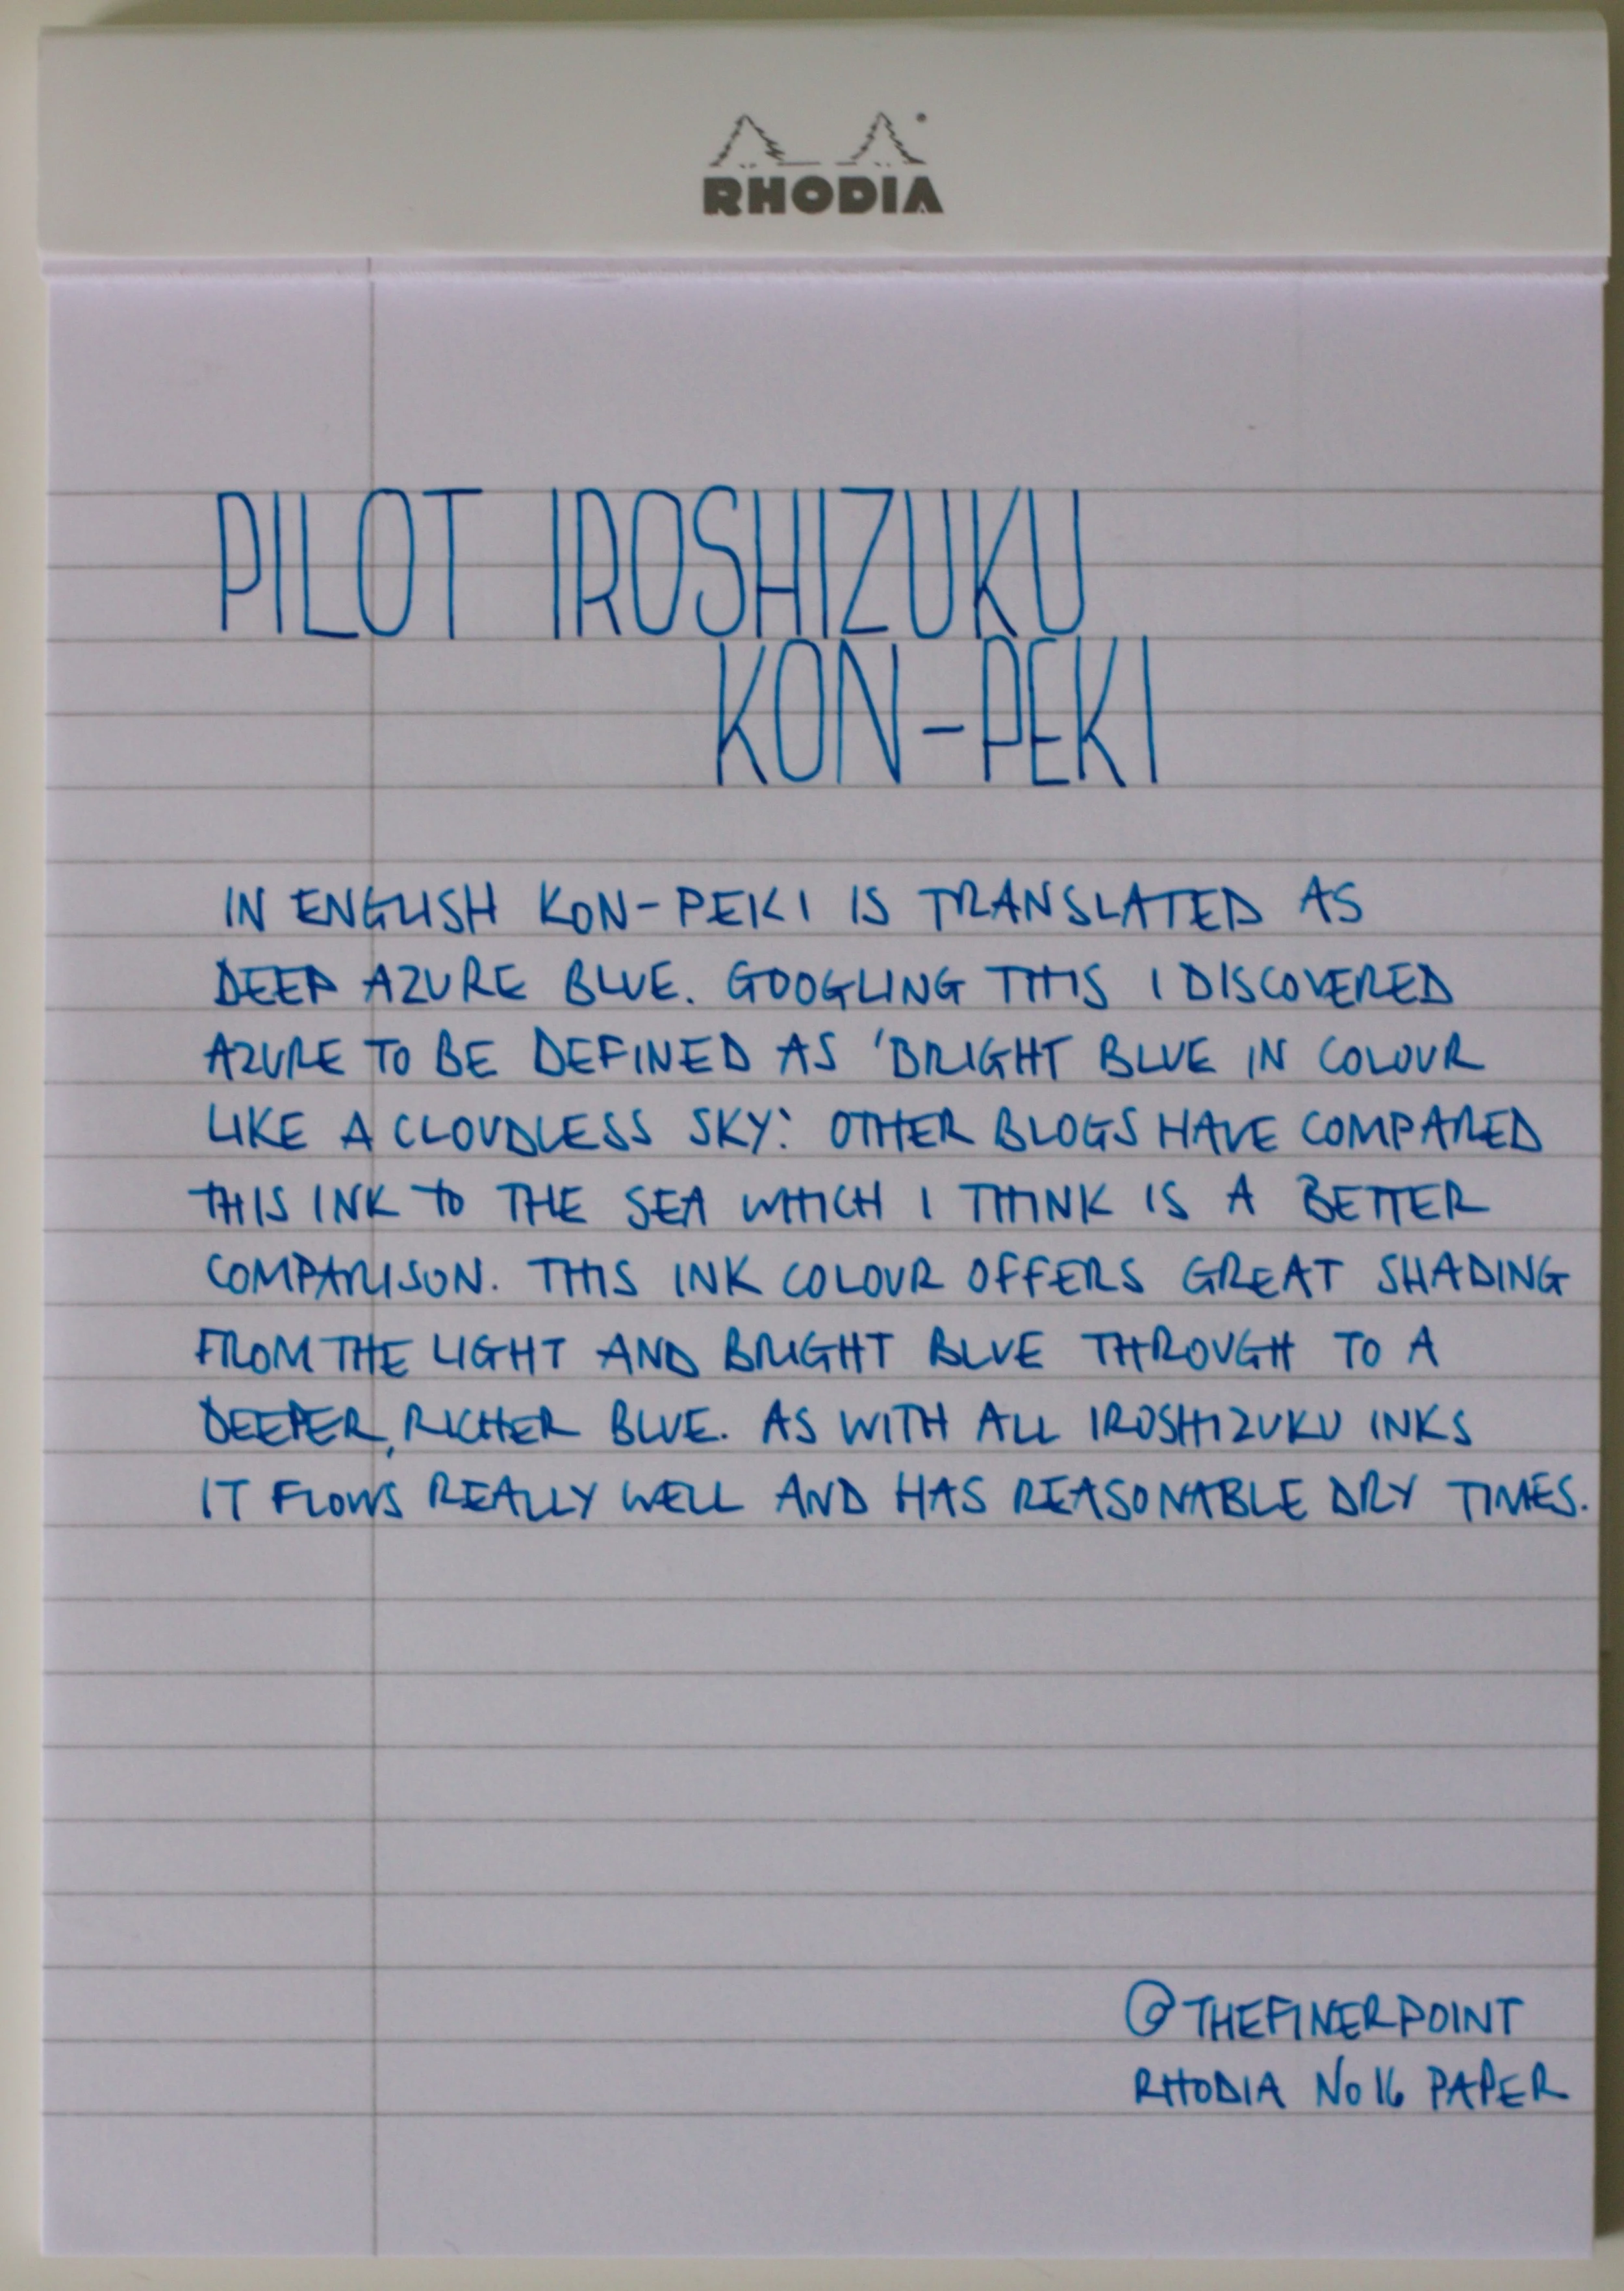 RHODIA
PILOT IROSHIZUKU
KON-PEKI
IN ENGLISH KON-PEKI IS TRANSLATED AS
DEEP AZURE BLUE. GOOGLING THIS I DISCOVERED
AZURE TO BE DEFINED AS 'BRIGHT BLUE IN COLOUR
LIKE A CLOUDLESS SKY'. OTHER BLOGS HAVE COMPARED
THIS INK TO THE SEA WHICH I THINK IS A BETTER
COMPARISON. THIS INK COLOUR OFFERS GREAT SHADING
FROM THE LIGHT AND BRIGHT BLUE THROUGH TO A
DEEPER, RICHER BLUE. AS WITH ALL IROSHIZUKU INKS
IT FLOWS REALLY WELL AND HAS REASONABLE DRY TIMES.
@THEFINERPOINT
RHODIA No 16 PAPER